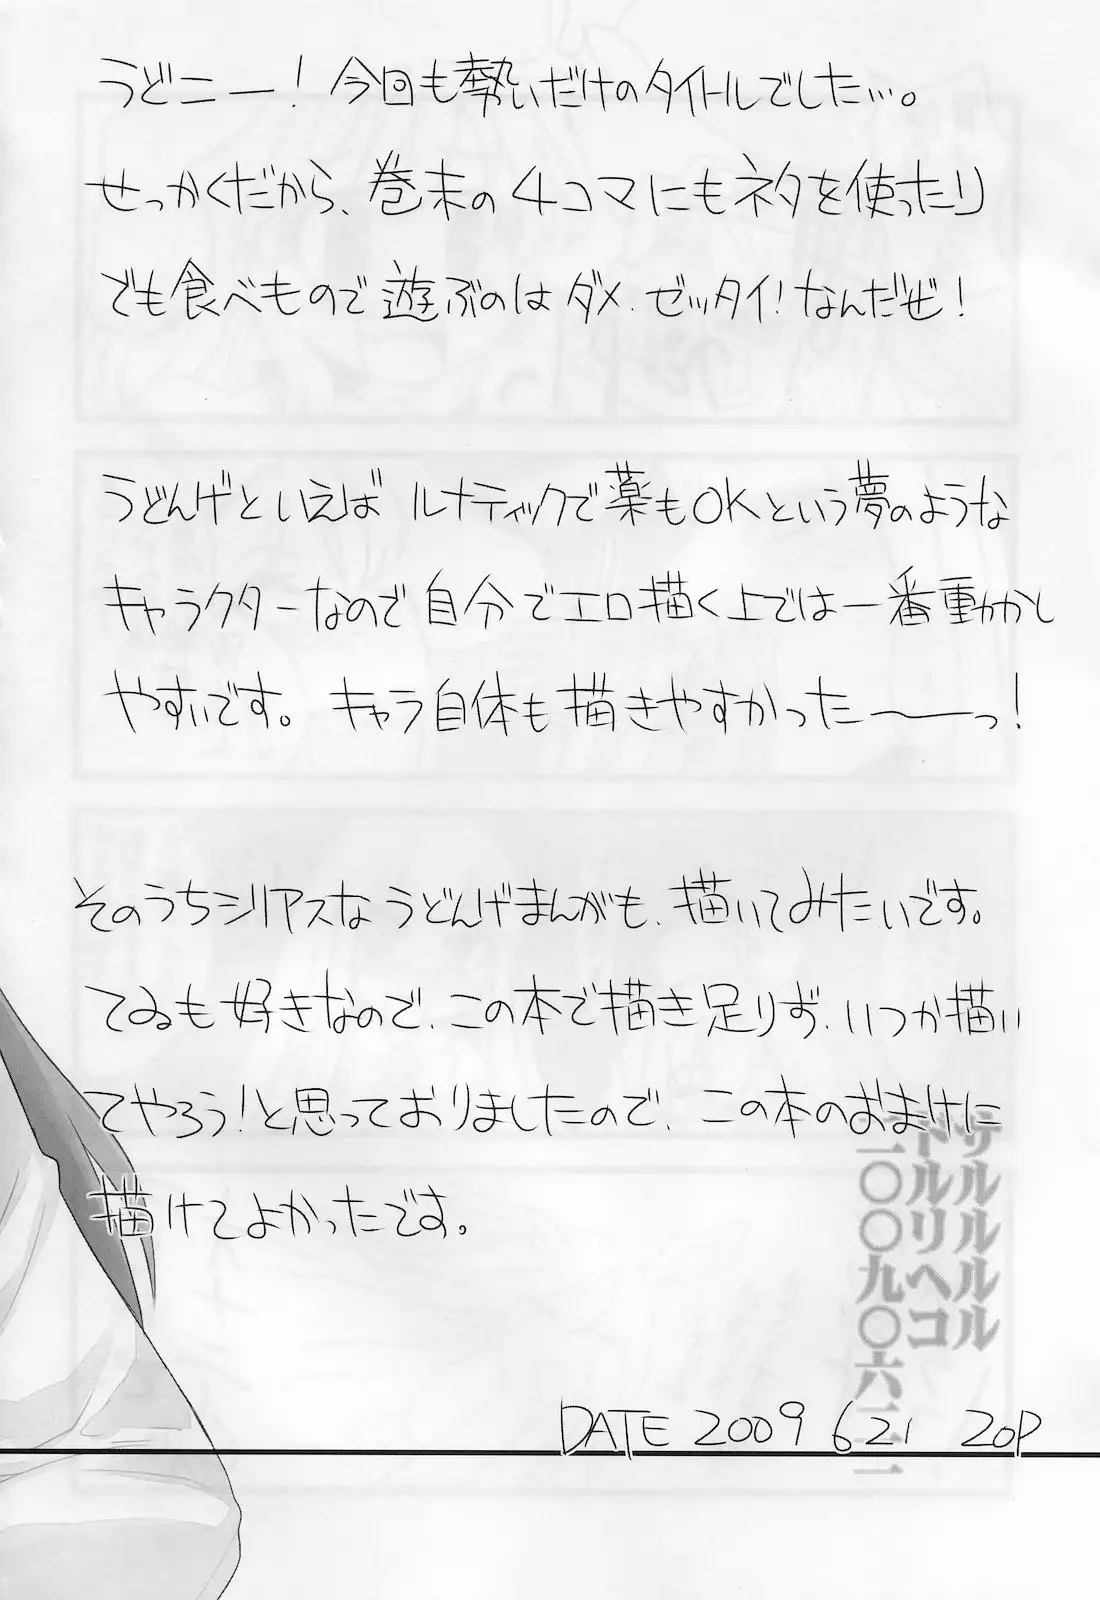 うどニー！今回も勢いだけのタイトルでした…。
せっかくだから、巻末の4コマにもネタを使ったり
でも食べもので遊ぶのはダメ、ゼッタイ！なんだぜ！
うどんげといえば ルナティックで薬もOKという夢のような
キャラクターなので自分でエロ描く上では一番動かし
やすいです。キャラ自体も描きやすかった〜ーっ！
そのうちシリアスなうどんげまんがも、描いてみたいです。
てゐも好きなので、この本で描き足りず、いつか描い
てやろう！と思っておりましたので、この本のおまけに
描けてよかったです。
サルルルルル
ドルリヘコ
二〇〇九〇六二一
DATE 2009 6 21 20P